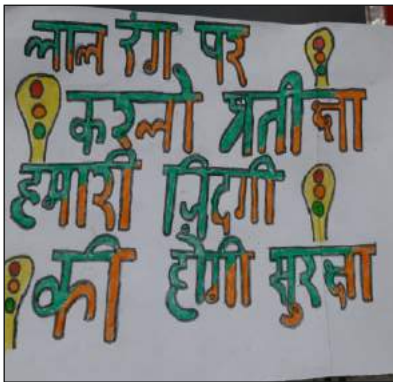 लाल रंग पर
करलो प्रतीक्षा
हमारी ज़िदगी
की होगी सुरक्षा